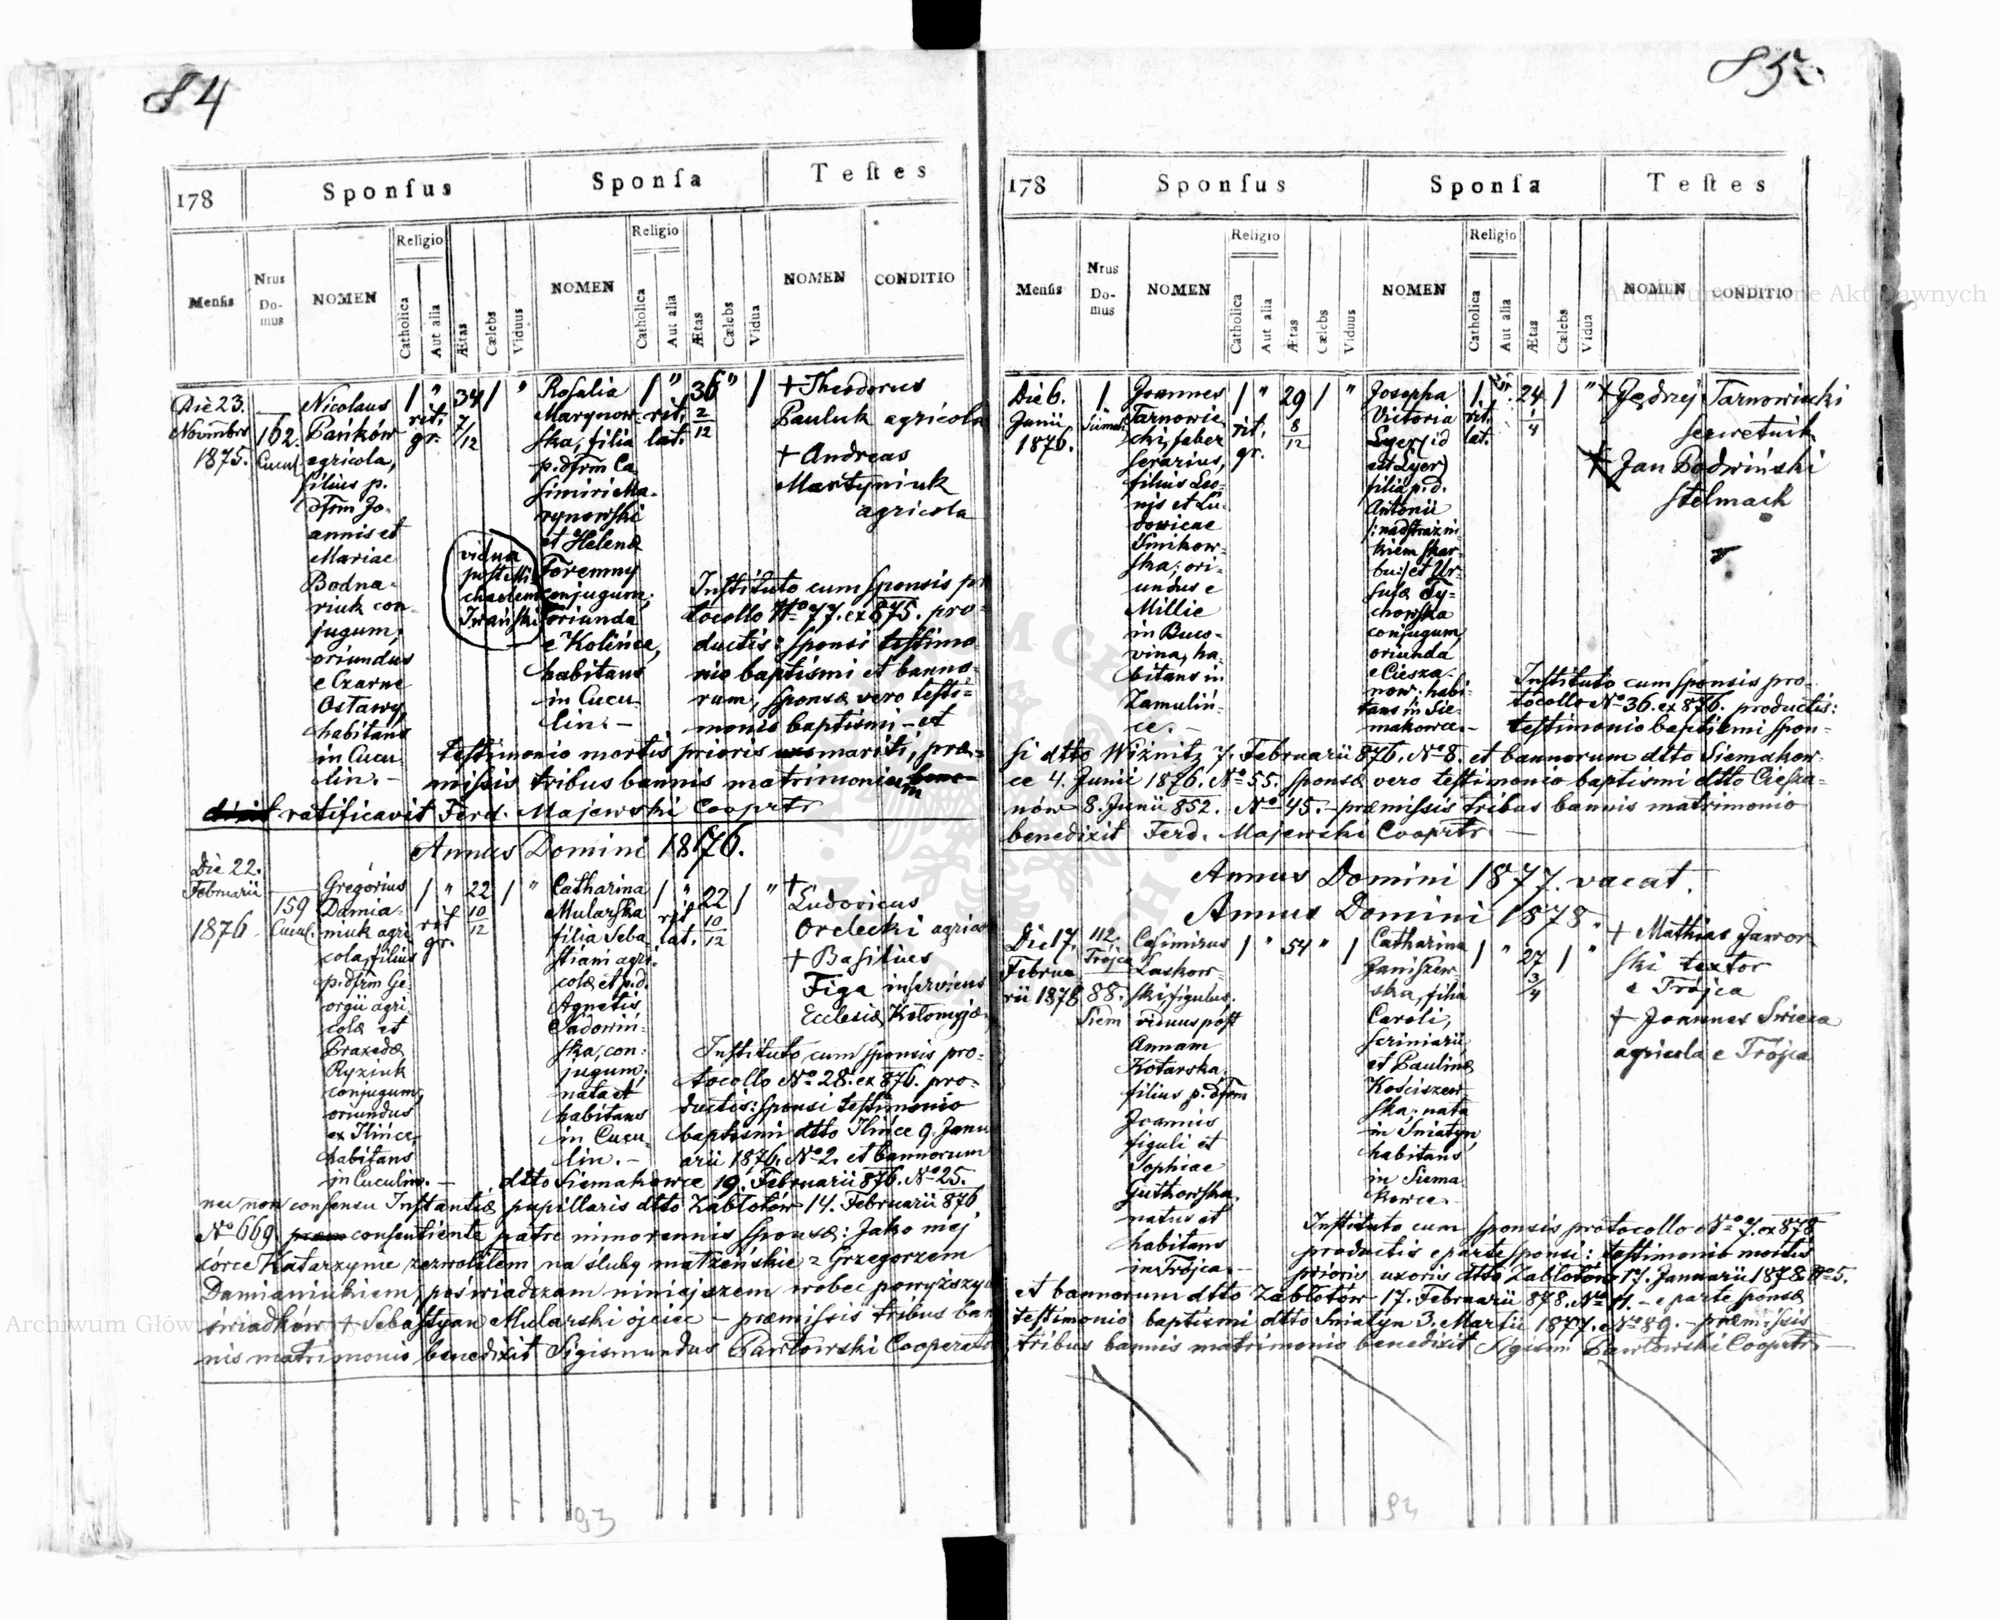 84
178
Sponsus
Sponsa
Testes
Mensis
Nrus Domus
NOMEN
Religio
Catholica
Aut alia
Ætas
Cælebs
Viduus
NOMEN
Religio
Catholica
Aut alia
Ætas
Cælebs
Vidua
NOMEN
CONDITIO
Die 23.
Novembris
1875.
162.
Cucul.
Nicolaus
Pańków
agricola,
filius p.
dfrm Jo-
annis et
Mariae
Bodna-
riuk con-
jugum,
oriundus
e Czarne
Ostawy,
habitans
in Cucu
lin. -
1 " 34 1 "
rit. gr.
7/12
vidua
post Mi-
chaelem
Iwański
Rosalia
Marynow-
ska, filia
p. dfrm Ca
simiri Ma-
rynowski
et Helenæ
Foremny
conjugum;
oriunda
e Kolińce,
habitans
in Cucu-
lin. -
1 " 36 " 1
rit. lat.
2/12
+ Theodorus
Pauluk agricola
+ Andreas
Martyniuk
agricola
Instituto cum sponsis pro
tocollo No 77. ex 875. pro-
ductis: sponsi testimo
nio baptismi et banno-
rum, sponsæ vero testi-
monio baptismi - et
testimonio mortis prioris mariti, præ-
missis tribus bannis matrimonium
ratificavit Ferd. Majewski Cooprtr
Annus Domini 1876.
Die 22.
Februarii
1876
159
Cucul.
Gregorius
Damia-
niuk agri
cola, filius
p. dfrm Ge-
orgii agri
colæ et
Praxedæ
Ryziuk
conjugum,
oriundus
ex Ilińce,
habitans
in Cuculin. -
1 " 22 1 "
rit. gr.
10/12
Catharina
Mularska
filia Seba
stiani agri-
colæ et p.d.
Agnetis
Sadowiń-
ska, con:
jugum;
nata et
habitans
in Cucu-
lin. -
1 " 22 1 "
rit. lat.
10/12
+
Ludovicus
Orelecki agricola
+ Basilius
Figa inserviens
Ecclesiæ Kołomyjæ
Instituto cum sponsis pro-
tocollo No 28. ex 876. pro-
ductis: sponsi testimonio
baptismi dtto Ilińce 9. Janu
arii 1876. No 2. et bannorum
dtto Siemakowce 19. Februarii 876. No 25.
nec non consensu Instantiæ pupillaris dtto Zabłotów 14. Februarii 876
No 669 consentiente patre minorennis sponsæ: Jako mej
córce Katarzynie zezwoliłem na śluby małżeńskie z Grzegorzem
Damianiukiem, poświadczam niniejszem wobec powyższych
świadków + Sebastyan Mularski ojciec - præmissis tribus ban
nis matrimonio benedixit Sigismundus Pawłowski Cooperator
93
85
178
Sponsus
Sponsa
Testes
Mensis
Nrus Domus
NOMEN
Religio
Catholica
Aut alia
Ætas
Cælebs
Viduus
NOMEN
Religio
Catholica
Aut alia
Ætas
Cælebs
Vidua
NOMEN
CONDITIO
Die 6.
Junii
1876.
1.
Siemak
Joannes
Tarnowie
cki, faber
ferarius,
filius Leo-
nis et Lu-
dowicae
Smikow-
ska; ori-
undus e
Millie
in Buco-
vina, ha-
bitans in
Zamuliń-
ce. -
1 " 29 1 "
rit. gr.
8/12
Josepha
Victoria
Lyer (id
est Lyer)
filia p.d.
Antonii
/: nadstrażni-
kiem skar-
bu :/ et Ur-
sulæ Ty-
chowska
conjugum,
oriunda
e Ciesza-
now: habi-
tans in Sie-
makowce. -
1. 24 1 "
rit. lat.
1/4
+ Jędrzej Tarnowiecki
serwetnik
+ Jan Podwiński
stelmach
Instituto cum sponsis pro-
tocollo No 36. ex 876. productis:
testimonio baptismi spon-
si dtto Wiżnitz 7. Februarii 876. No 8. et bannorum dtto Siemakow-
ce 4. Junii 1876. No 55. sponsæ vero testimonio baptismi dtto Ciesza-
nów 8. Junii 852. No 45. - præmissis tribus bannis matrimonio
benedixit Ferd. Majewski Cooprtr -
Annus Domini 1877. vacat.
Annus Domini 1878.
Die 17.
Februa
rii 1878
112.
Trójca
88.
Siem
Casimirus
Laskow-
ski, figulus.
viduus post
Annam
Kotarska,
filius p. dfrm
Joannis
figuli et
Sophiae
Gutkowska,
natus et
habitans
in Trójca. -
1 " 54 " 1
Catharina
Janiszew-
ska, filia
Caroli,
scriniarii
et Paulinæ
Kościszew-
ska; nata
in Sniatyn,
habitans
in Siema
kowce. -
1 " 27 1 "
3/4
+ Mathias Jawor-
ski textor
e Trójca
+ Joannes Swieca
agricola e Trójca
Instituto cum sponsis protocollo No 7. ex 878
productis e parte sponsi: testimonio mortis
prioris uxoris dtto Zabłotów 17. Januarii 1878. No 5.
et bannorum dtto Zabłotów 17. Februarii 878. No 11. - e parte sponsæ
testimonio baptismi dtto Sniatyn 3. Martii 1877. No 89. - præmissis
tribus bannis matrimonio benedixit Sigism Pawłowski Cooprtr -
94
Archiwum Główne Akt Dawnych